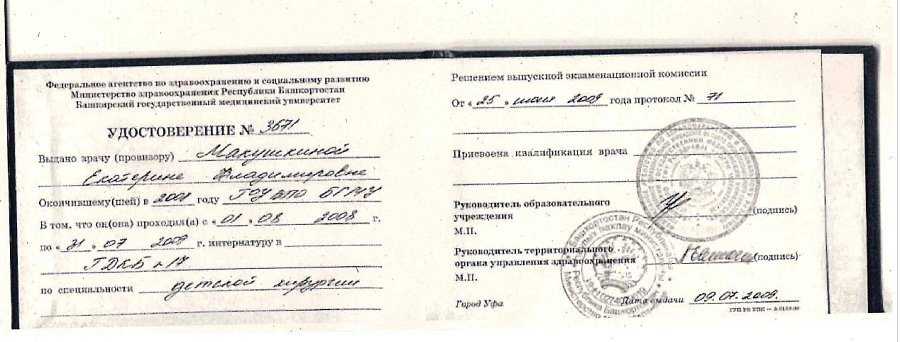 Федеральное агентство по здравоохранению и социальному развитию
Министерство здравоохранения Республики Башкортостан
Башкирский государственный медицинский университет
УДОСТОВЕРЕНИЕ № 3671
Выдано врачу (провизору) Макушкиной
Екатерине Владимировне
Окончившему(шей) в 2008 году ГОУ ВПО БГМУ
В том, что он(она) проходил(а) с « 01 » 08 2008 г.
по « 31 » 07 2009 г. интернатуру в
ГДКБ №17
по специальности детской хирургии
Решением выпускной экзаменационной комиссии
От « 25 » июня 2009 года протокол № 71
Присвоена квалификация врача
Руководитель образовательного
учреждения (подпись)
М.П.
Руководитель территориального
органа управления здравоохранения (подпись)
М.П.
Город Уфа Дата выдачи 09.07.2009.